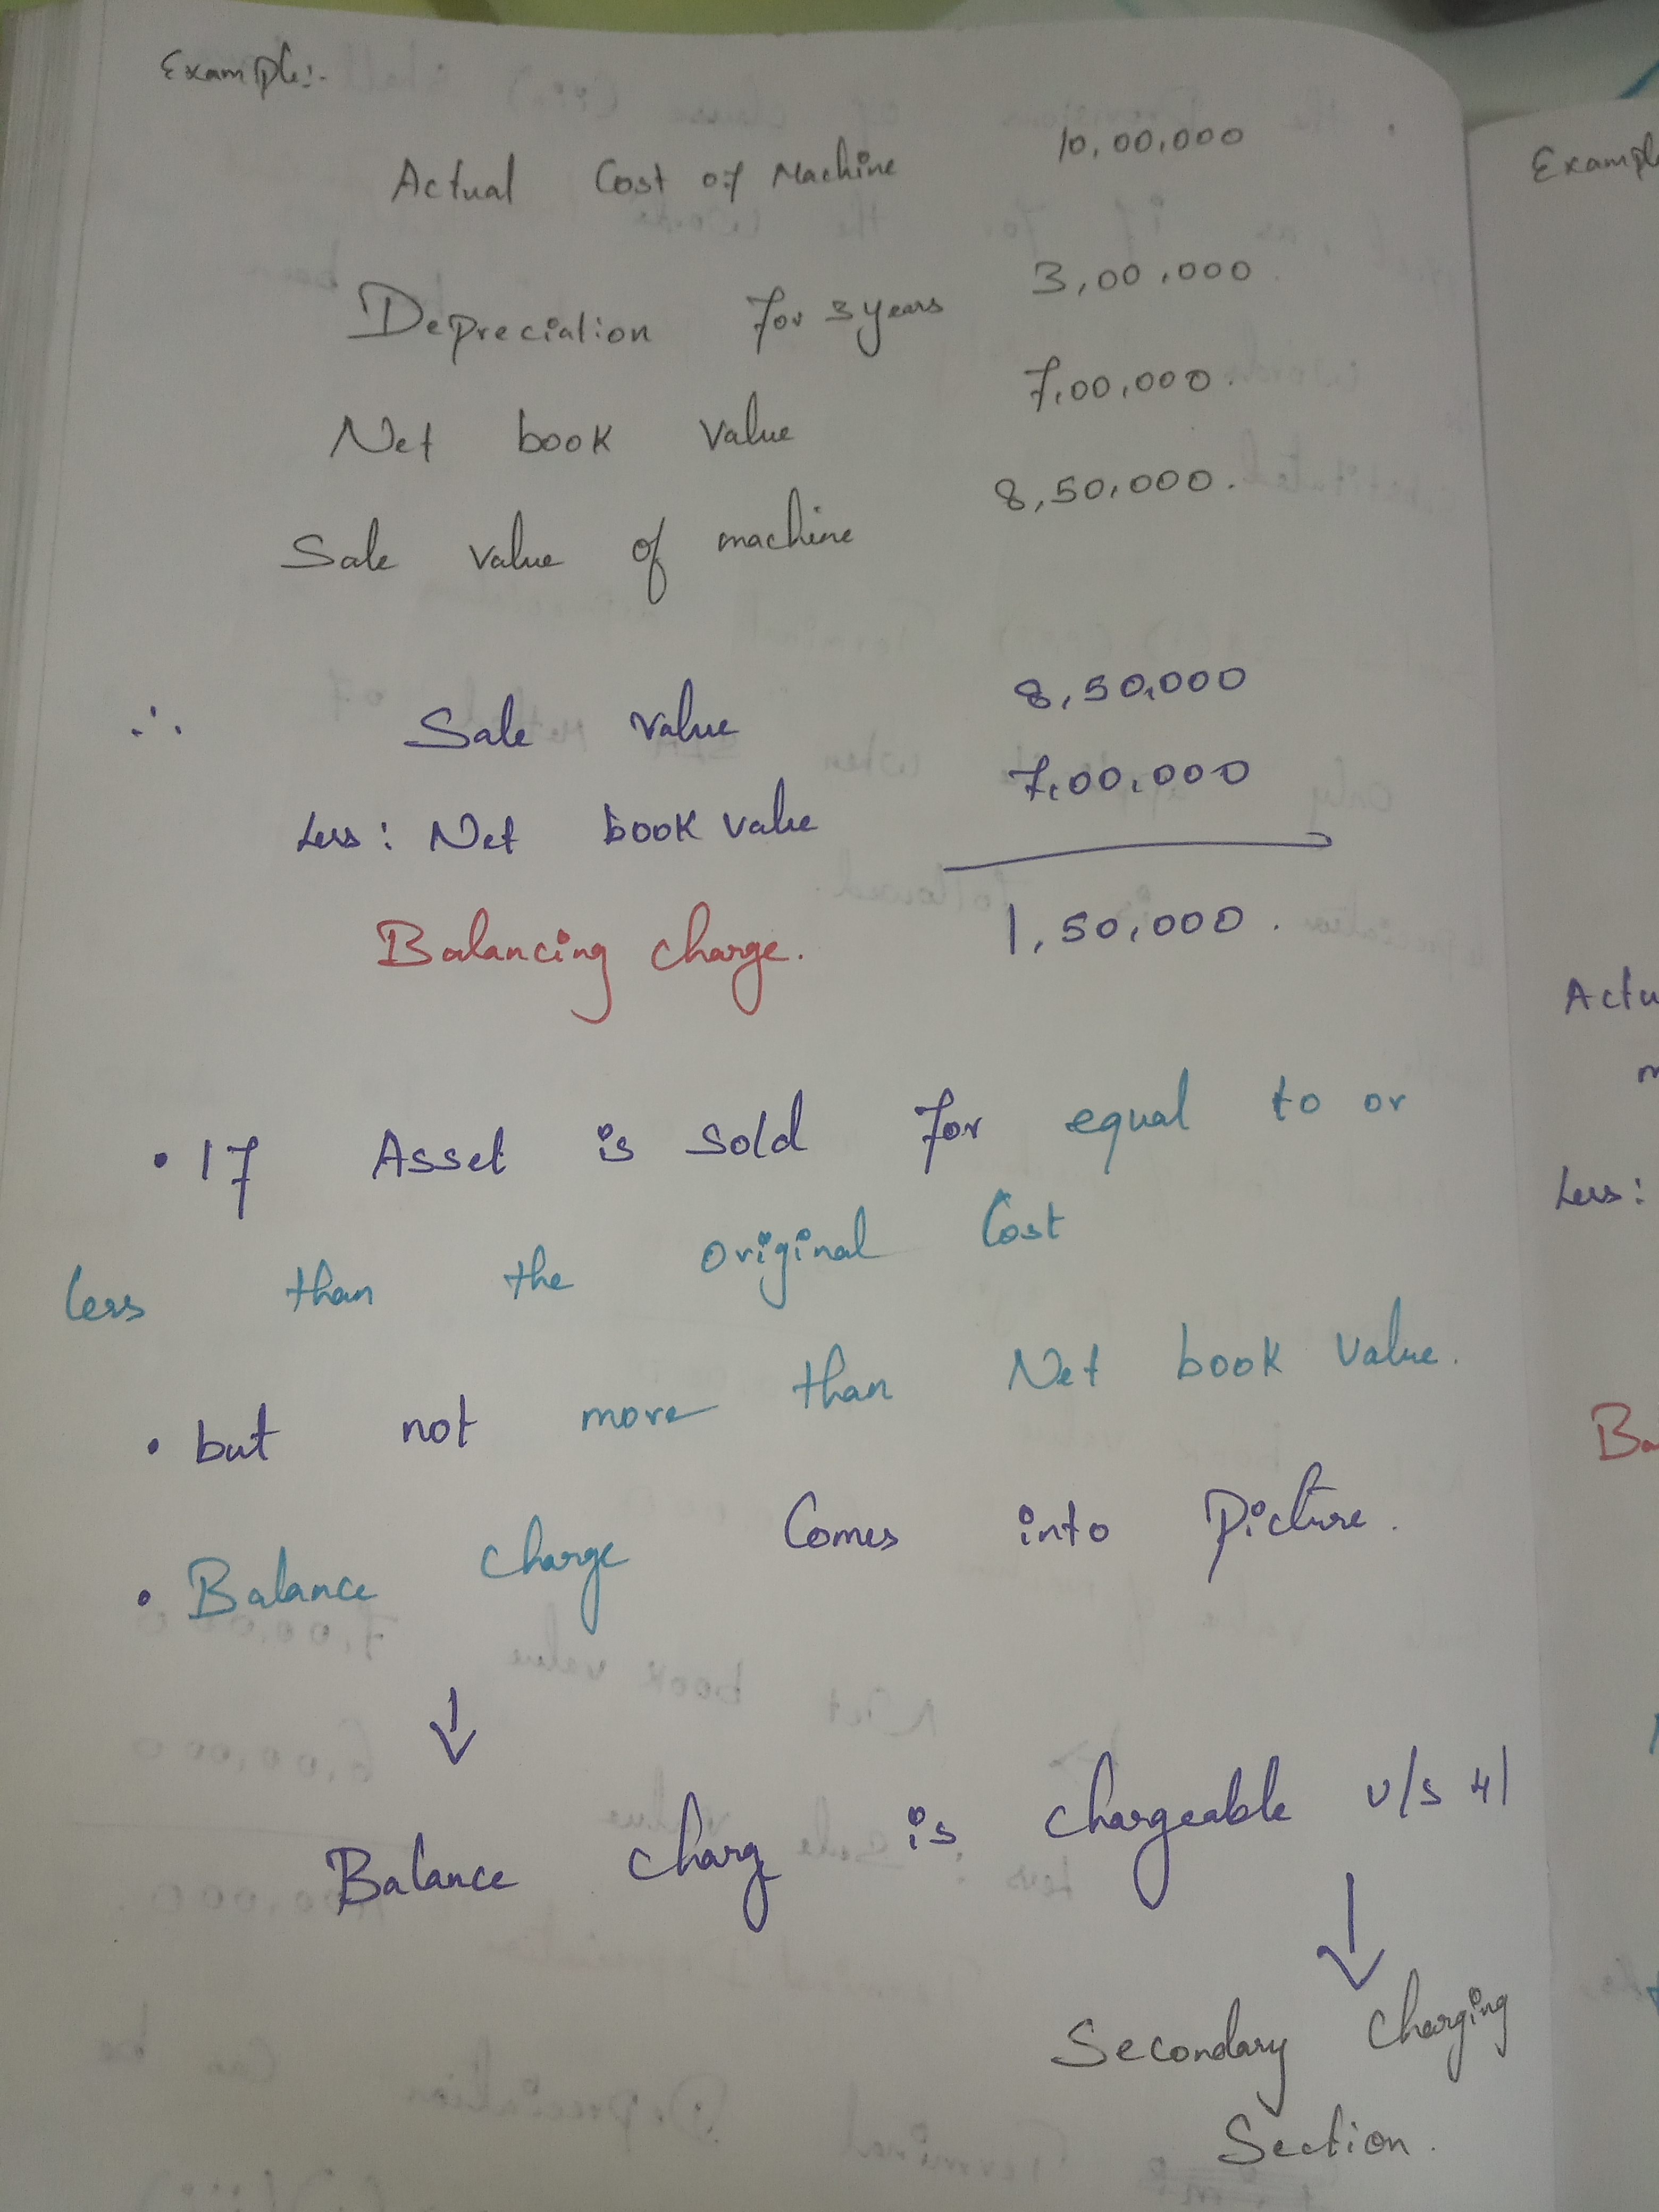 Example:-
Actual Cost of Machine 10,00,000
Depreciation for 3 years 3,00,000.
Net book Value 7,00,000.
Sale value of machine 8,50,000.
∴ Sale value 8,50,000
Less: Net book value 7,00,000
Balancing charge. 1,50,000.
• If Asset is sold for equal to or
less than the original Cost
• but not more than Net book value.
• Balance charge Comes into Picture.
↓
Balance charg is chargeable u/s 41
↓
Secondary Charging
Section.
Exampl
Actu
m
Less:
Ba